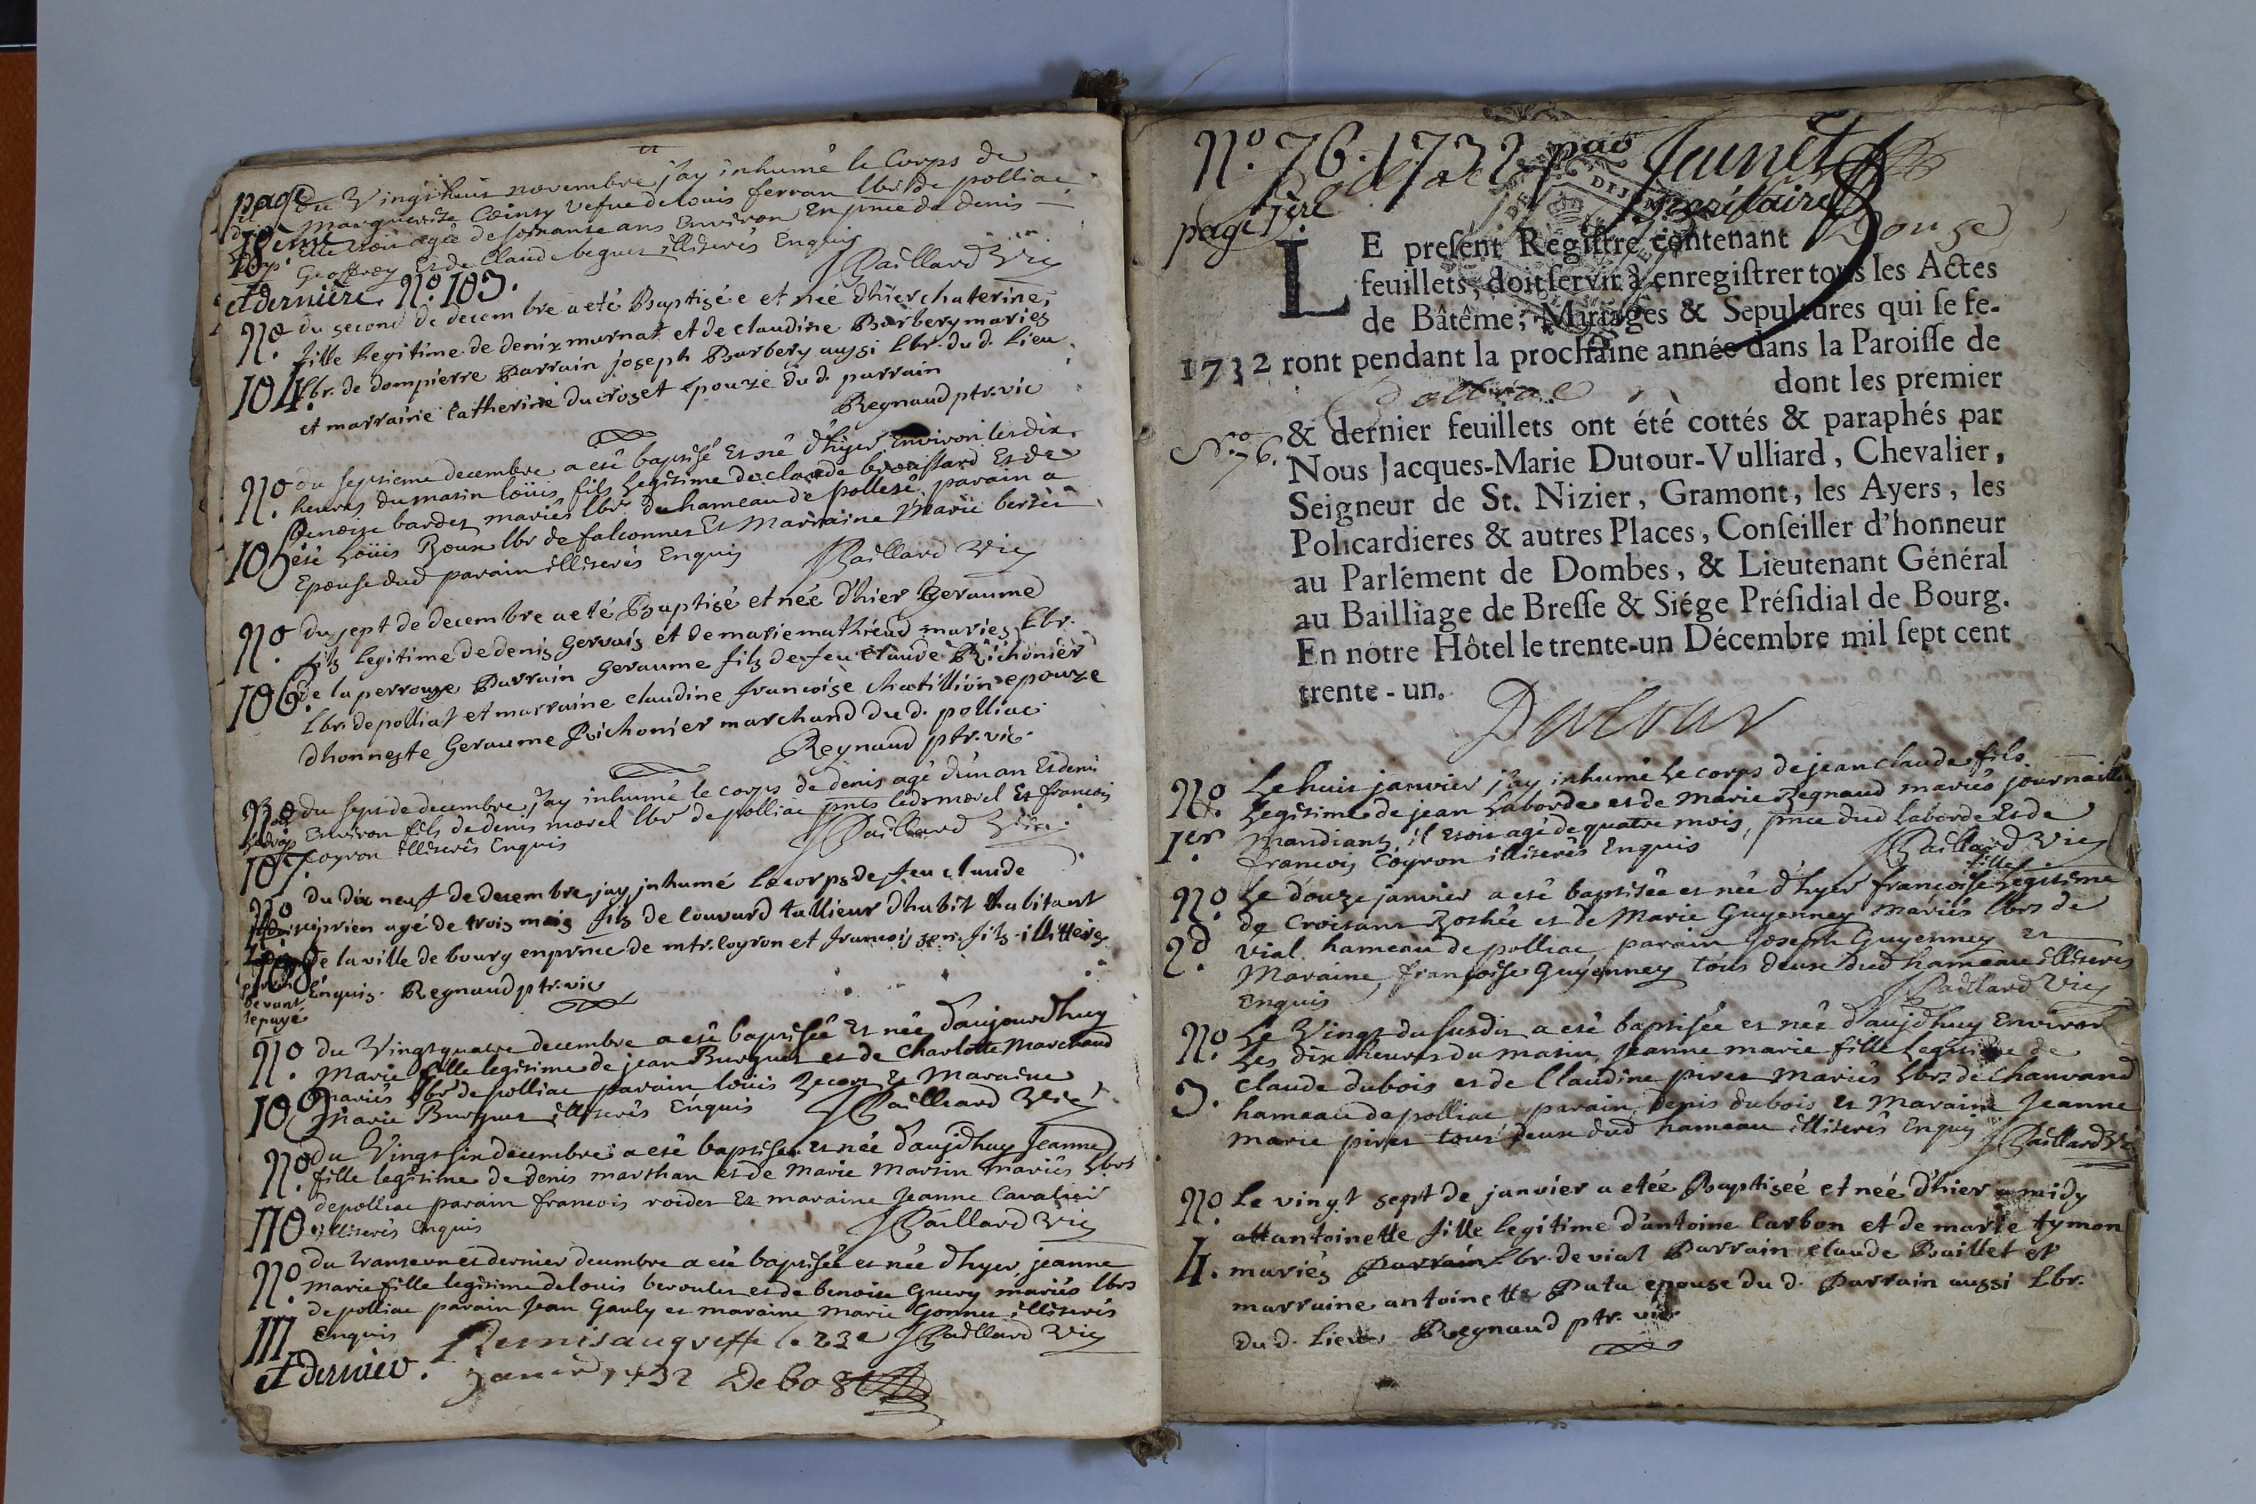 page
18ème
et dernière. No. 103.
du Vingt huit novembre j'ay inhumé le Corps de
Marguerite Cointy vefue de louis ferran lbr de polliac
elle etoit agée de soixante ans Environ En pnce de denis
Geoffray Et de Claude beguet illiterés Enquis
Paillard Vic
No. 104.
du second de decembre a eté Baptizée et née d'hier chaterine,
fille legitime de denix murnat et de claudine Barbery mariez
lbr. de dompierre Parrain joseph Barbery aussi lbr. du d. lieu
et marraine catherine ducroset epouze du d. parrain
Regnaud ptr. vic
No. 105
du septieme decembre a eté baptisé Et né d'hyer Environ les dix
heures du matin loüis fils legitime de claude brouillard Et de
Benoite bardet mariés lbr du hameau de polleté parain a
été loüis Roux lbr de falconnet Et Marraine Marie
Epouse dud parain illiterés Enquis Paillard Vic
No. 106.
du sept de decembre a eté Baptizé et née d'hier Geraume
filz legitime de denis Gervais et de marie mathieud mariez lbr.
de la perrouze Parrain Geraume filz de feu claude Richonier
lbr. de polliat et marraine claudine francoise chatillion epouze
dhonneste Geraume Richonier marchand du d. polliac.
Regnaud ptr. vic.
No. 107.
du sept de decembre j'ay inhumé le corps de denis agé d'un an Et demi
Environ fils de denis morel lbr de polliac pnts led. morel Et francois
Coyron illiterés Enquis Paillard Vic
No. 108
du dix neuf de decembre jay inhumé le corps de feu claude
ciprien agé de trois mois filz de louvard tallieur dhabit habitant
de la ville de bourg en prnce de mtr. coyron et francois son filz illitterez
Enquis. Regnaud ptr. vic
No. 109
du Vingt quatre decembre a eté baptisée Et née d'aujourdhuy
Marie fille legitime de jean Burguet et de Charlotte Marchand
mariés lbr de polliac parain loüis Et Maraine
Marie Burguet illiterés Enquis Paillard Vic
No. 110
du Vingt six decembre a eté baptisée et née d'aujdhuy Jeanne
fille legitime de denis marthan et de Marie Martin mariés lbrs
de polliac parain francois roidet Et maraine Jeanne Cavalier
illiterés Enquis Paillard Vic
No. 111
et dernier.
du trante un et dernier decembre a eté baptisée et née d'hyer jeanne
marie fille legitime de louis beroulet et de benoite Guery mariés lbrs
de polliac parain Jean Gauly et maraine marie Gonnet illiterés
Enquis Paillard Vic
Remis au greffe le 23e
janvier 1732 Debost
No. 76. 1732 par Jaunet
page 1ère
LE present Registre contenant Douze
feuillets, doit servir à enregistrer tous les Actes
de Bâtême, Mariages & Sepultures qui se fe-
1732 ront pendant la prochaine année dans la Paroisse de
Polliac dont les premier
& dernier feuillets ont été cottés & paraphés par
No. 76.
Nous Jacques-Marie Dutour-Vulliard, Chevalier,
Seigneur de St. Nizier, Gramont, les Ayers, les
Policardieres & autres Places, Conseiller d'honneur
au Parlément de Dombes, & Lieutenant Général
au Bailliage de Bresse & Siége Présidial de Bourg.
En nôtre Hôtel le trente-un Décembre mil sept cent
trente-un.
Dutour
No. 1er.
Le huit janvier j'ay inhumé le corps de jean claude fils
legitime de jean laborde et de Marie Regnaud mariés journaillier
Mandiant, il etoit agé de quatre mois, pnce dud laborde Et de
francois Coyron illiterés Enquis Paillard Vic
No. 2d.
Le douze janvier a eté baptisée et née d'hyer francoise fille legitime
de Croisant Rothée et de Marie Guyenney Mariés lbrs de
vial hameau de polliac parain Joseph Guyenney et
Maraine francoise Guyenney tous deux dud hameau illiterés
Enquis Paillard Vic
No. 3.
Le Vingt du susdit a eté baptisée et née d'aujdhuy Environ
les dix heures du matin Jeanne marie fille legitime de
Claude dubois et de Claudine piret Mariés lbrs de Chanvand
hameau de polliac parain denis dubois et Maraine Jeanne
Marie piret tous deux dud hameau illiterés Enquis Paillard Vic
No. 4.
Le vingt sept de janvier a etée Baptizée et née d'hier a midy
antoinette fille legitime d'antoine Carbon et de marie tymon
mariés Parrain lbr. de vial Parrain claude Baillet et
marraine antoinette Patu epouse du d. Parrain aussi lbr.
du d. lieu Regnaud ptr. vic